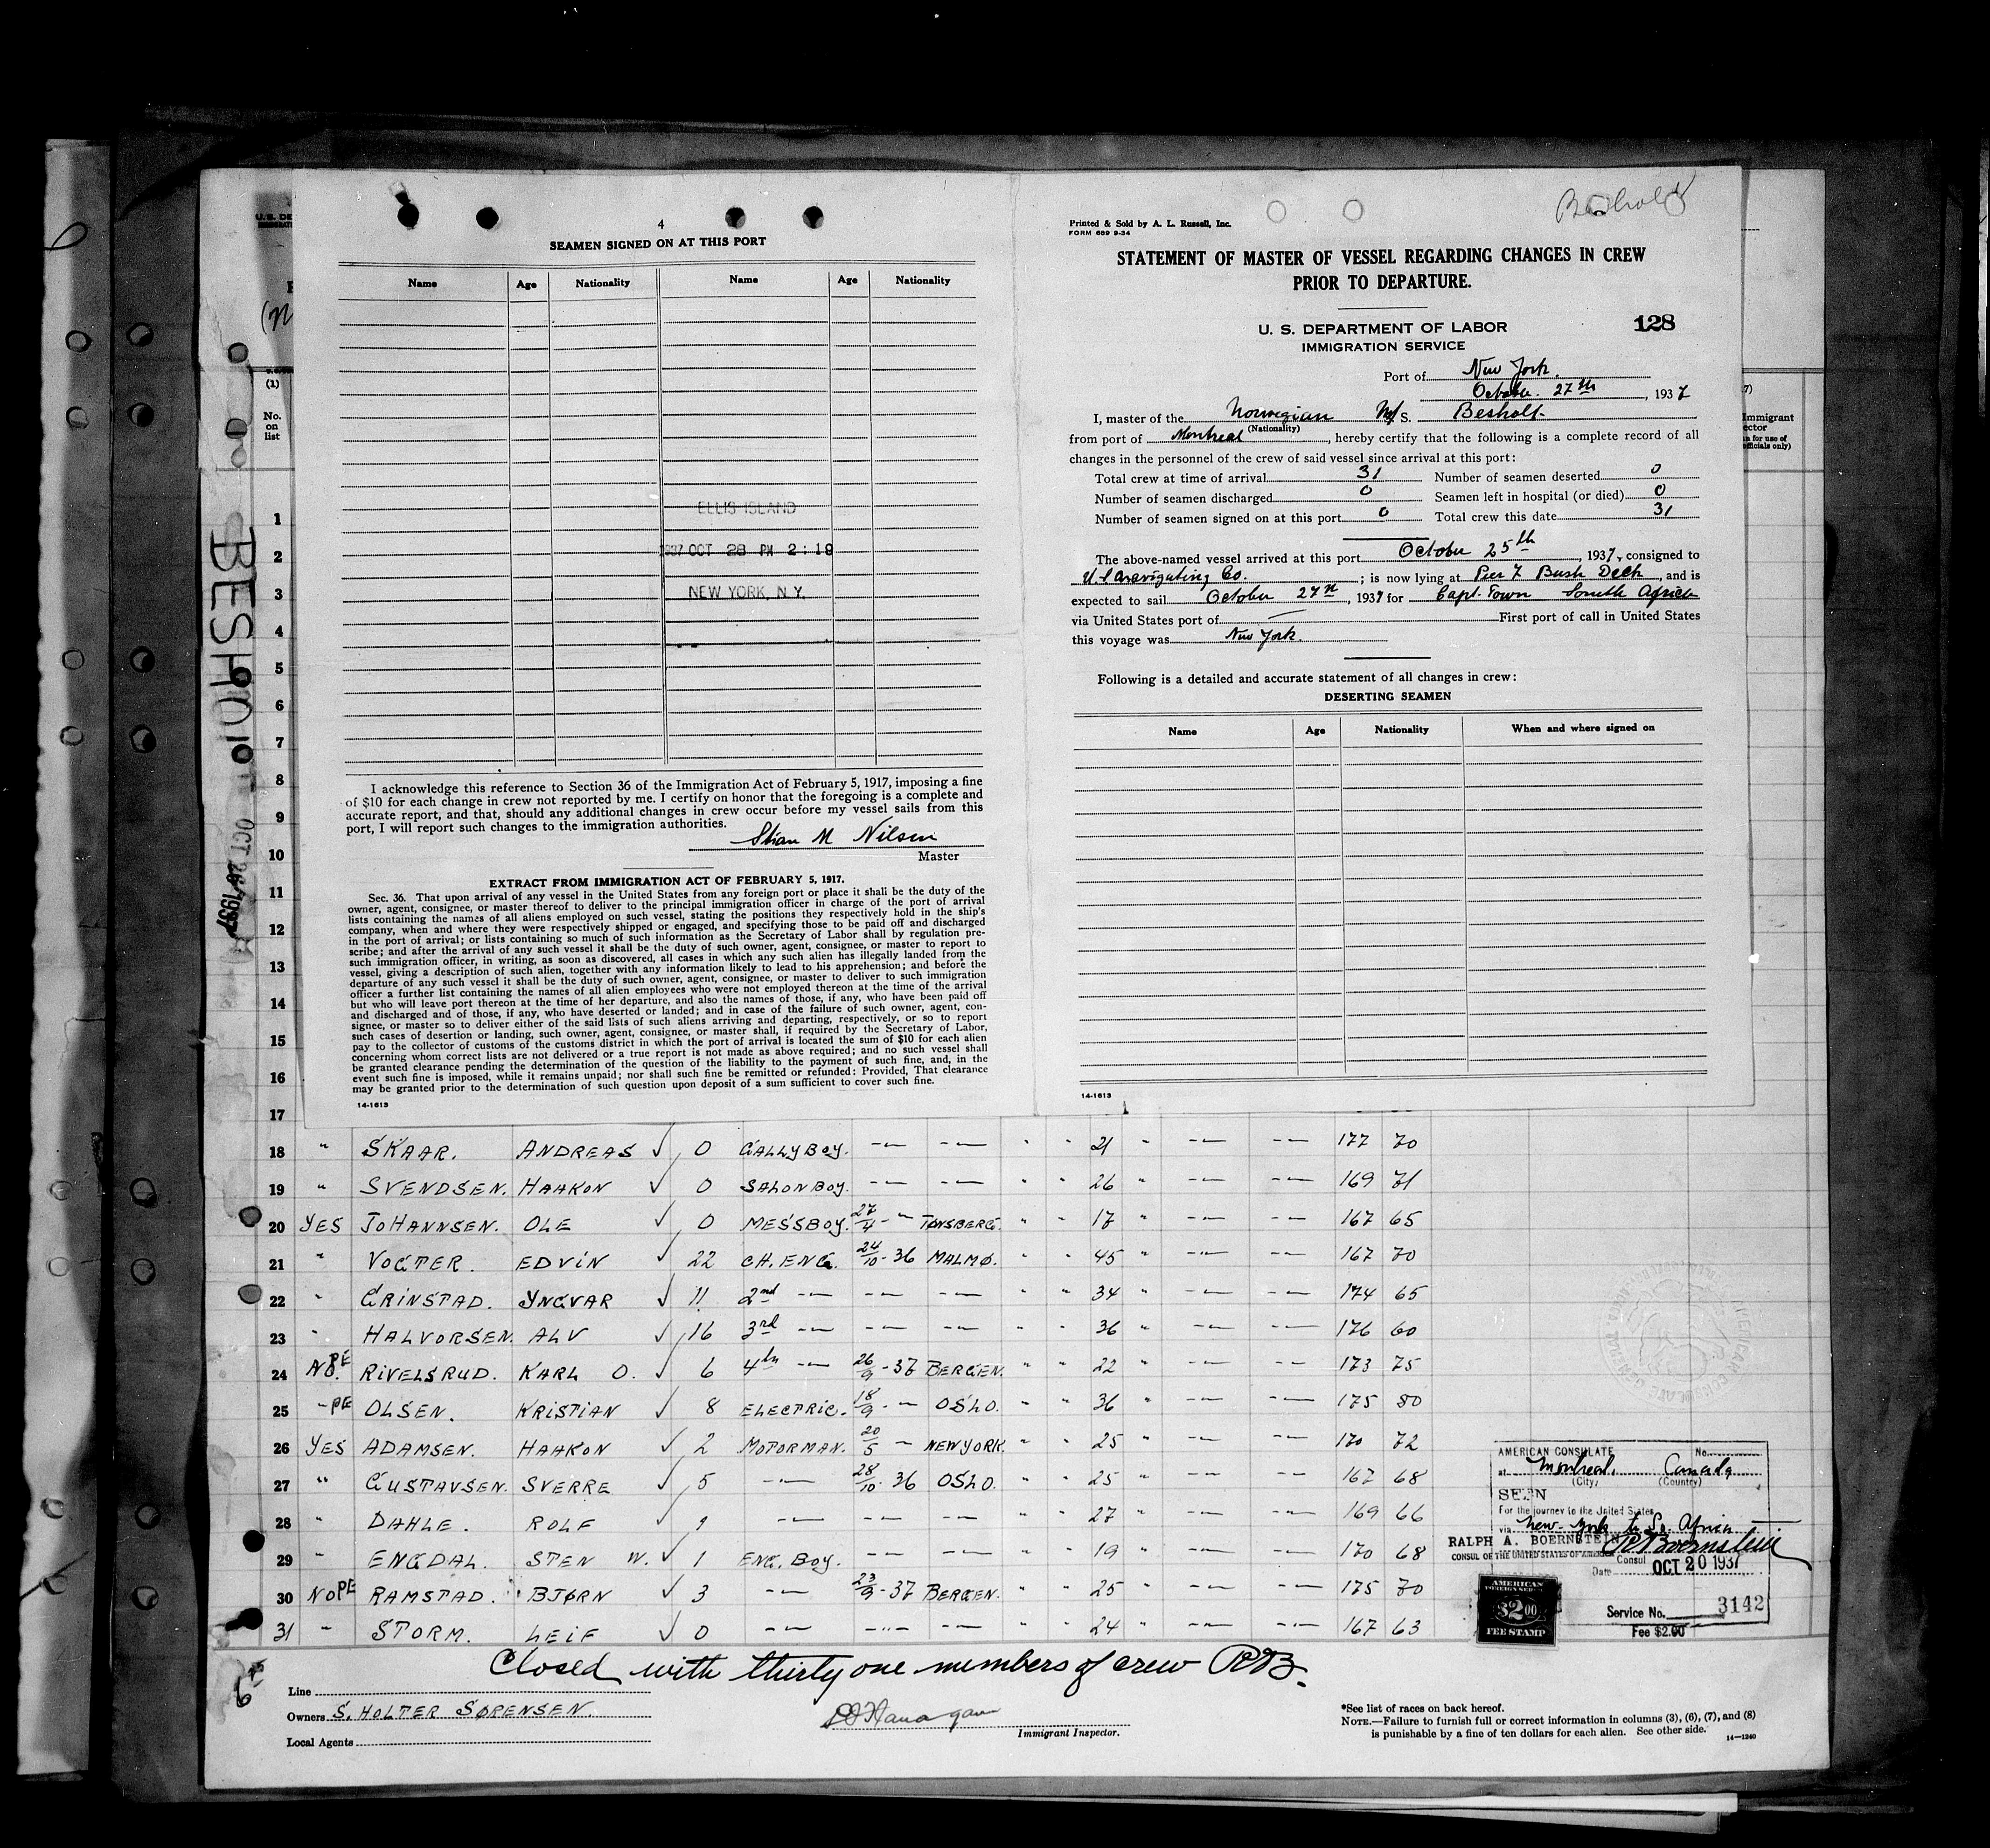 4
SEAMEN SIGNED ON AT THIS PORT
Name Age Nationality Name Age Nationality
ELLIS ISLAND
1937 OCT 28 PM 2:19
NEW YORK, N.Y.
I acknowledge this reference to Section 36 of the Immigration Act of February 5, 1917, imposing a fine
of $10 for each change in crew not reported by me. I certify on honor that the foregoing is a complete and
accurate report, and that, should any additional changes in crew occur before my vessel sails from this
port, I will report such changes to the immigration authorities.
Nilsen
Master
EXTRACT FROM IMMIGRATION ACT OF FEBRUARY 5, 1917.
Sec. 36. That upon arrival of any vessel in the United States from any foreign port or place it shall be the duty of the
owner, agent, consignee, or master thereof to deliver to the principal immigration officer in charge of the port of arrival
lists containing the names of all aliens employed on such vessel, stating the positions they respectively hold in the ship's
company, when and where they were respectively shipped or engaged, and specifying those to be paid off and discharged
in the port of arrival; or lists containing so much of such information as the Secretary of Labor shall by regulation pre-
scribe; and after the arrival of any such vessel it shall be the duty of such owner, agent, consignee, or master to report to
such immigration officer, in writing, as soon as discovered, all cases in which any such alien has illegally landed from the
vessel, giving a description of such alien, together with any information likely to lead to his apprehension; and before the
departure of any such vessel it shall be the duty of such owner, agent, consignee, or master to deliver to such immigration
officer a further list containing the names of all alien employees who were not employed thereon at the time of the arrival
but who will leave port thereon at the time of her departure, and also the names of those, if any, who have been paid off
and discharged and of those, if any, who have deserted or landed; and in case of the failure of such owner, agent, con-
signee, or master so to deliver either of the said lists of such aliens arriving and departing, respectively, or so to report
such cases of desertion or landing, such owner, agent, consignee, or master shall, if required by the Secretary of Labor,
pay to the collector of customs of the customs district in which the port of arrival is located the sum of $10 for each alien
concerning whom correct lists are not delivered or a true report is not made as above required; and no such vessel shall
be granted clearance pending the determination of the question of the liability to the payment of such fine, and, in the
event such fine is imposed, while it remains unpaid; nor shall such fine be remitted or refunded: Provided, That clearance
may be granted prior to the determination of such question upon deposit of a sum sufficient to cover such fine.
14-1613
Besholt
Printed & Sold by A. L. Russell, Inc.
FORM 689 9-34
STATEMENT OF MASTER OF VESSEL REGARDING CHANGES IN CREW
PRIOR TO DEPARTURE.
U. S. DEPARTMENT OF LABOR
IMMIGRATION SERVICE
128
Port of New York.
October 27th, 1937
I, master of the Norwegian M/S. Besholt
(Nationality)
from port of Montreal, hereby certify that the following is a complete record of all
changes in the personnel of the crew of said vessel since arrival at this port:
Total crew at time of arrival 31 Number of seamen deserted 0
Number of seamen discharged 0 Seamen left in hospital (or died) 0
Number of seamen signed on at this port 0 Total crew this date 31
The above-named vessel arrived at this port October 25th, 1937, consigned to
U.S. Navigating Co.; is now lying at Pier 7 Bush Dock, and is
expected to sail October 27th, 1937 for Capt. Town South Africa
via United States port of — First port of call in United States
this voyage was New York.
Following is a detailed and accurate statement of all changes in crew:
DESERTING SEAMEN
Name Age Nationality When and where signed on
14-1613
U.S. DE
(1)
No.
on
list
BESHOLT
OCT 26 1937
Immigrant
ector
n for use of
officials only)
1
2
3
4
5
6
7
8
9
10
11
12
13
14
15
16
17
18 " SKAAR. ANDREAS ✓ 0 GALLYBOY. -"- -"- " " 21 " -"- -"- 177 70
19 " SVENDSEN. HAAKON ✓ 0 SALONBOY. -"- -"- " " 26 " -"- -"- 169 71
20 YES JOHANNSEN. OLE ✓ 0 MESSBOY. 27/4 - " TØNSBERG. " " 17 " -"- -"- 167 65
21 " VOGTER. EDVIN ✓ 22 CH. ENG. 24/10 - 36 MALMØ. " " 45 " -"- -"- 167 70
22 " GRINSTAD. YNGVAR ✓ 11 2nd -"- -"- -"- " " 34 " -"- -"- 174 65
23 " HALVORSEN. ALV ✓ 16 3rd -"- -"- -"- " " 36 " -"- -"- 176 60
24 NO. PE RIVELSRUD. KARL O. ✓ 6 4th -"- 26/9 - 37 BERGEN. " " 22 " -"- -"- 173 75
25 " PE OLSEN. KRISTIAN ✓ 8 ELECTRIC. 18/9 - " OSLO. " " 36 " -"- -"- 175 80
26 YES ADAMSEN. HAAKON ✓ 2 MOTORMAN. 20/5 " NEWYORK. " " 25 " -"- -"- 170 72
27 " GUSTAVSEN. SVERRE ✓ 5 -"- 28/10 - 36 OSLO. " " 25 " -"- -"- 167 68
28 " DAHLE. ROLF ✓ 1 -"- -"- -"- " " 27 " -"- -"- 169 66
29 " ENGDAL. STEN W. ✓ 1 ENG. BOY. -"- -"- " " 19 " -"- -"- 170 68
30 NO PE RAMSTAD. BJØRN ✓ 3 -"- 23/9 - 37 BERGEN. " " 25 " -"- -"- 175 70
31 " STORM. LEIF ✓ 0 -"- -"- -"- " " 24 " -"- -"- 167 63
AMERICAN CONSULATE No.
at Montreal, Canada
(City) (Country)
SEEN
For the journey to the United States
via New-York to So. Africa
RALPH A. BOERNSTEIN RABoernstein
CONSUL OF THE UNITED STATES OF AMERICA Consul
Date OCT 20 1937
AMERICAN
FOREIGN SERVICE
$2.00
FEE STAMP
Service No. 3142
Fee $2.00
Closed with thirty one members of crew RAB.
Line
Owners S. HOLTER SØRENSEN.
Local Agents
Immigrant Inspector.
*See list of races on back hereof.
NOTE.—Failure to furnish full or correct information in columns (3), (6), (7), and (8)
is punishable by a fine of ten dollars for each alien. See other side.
14—1240